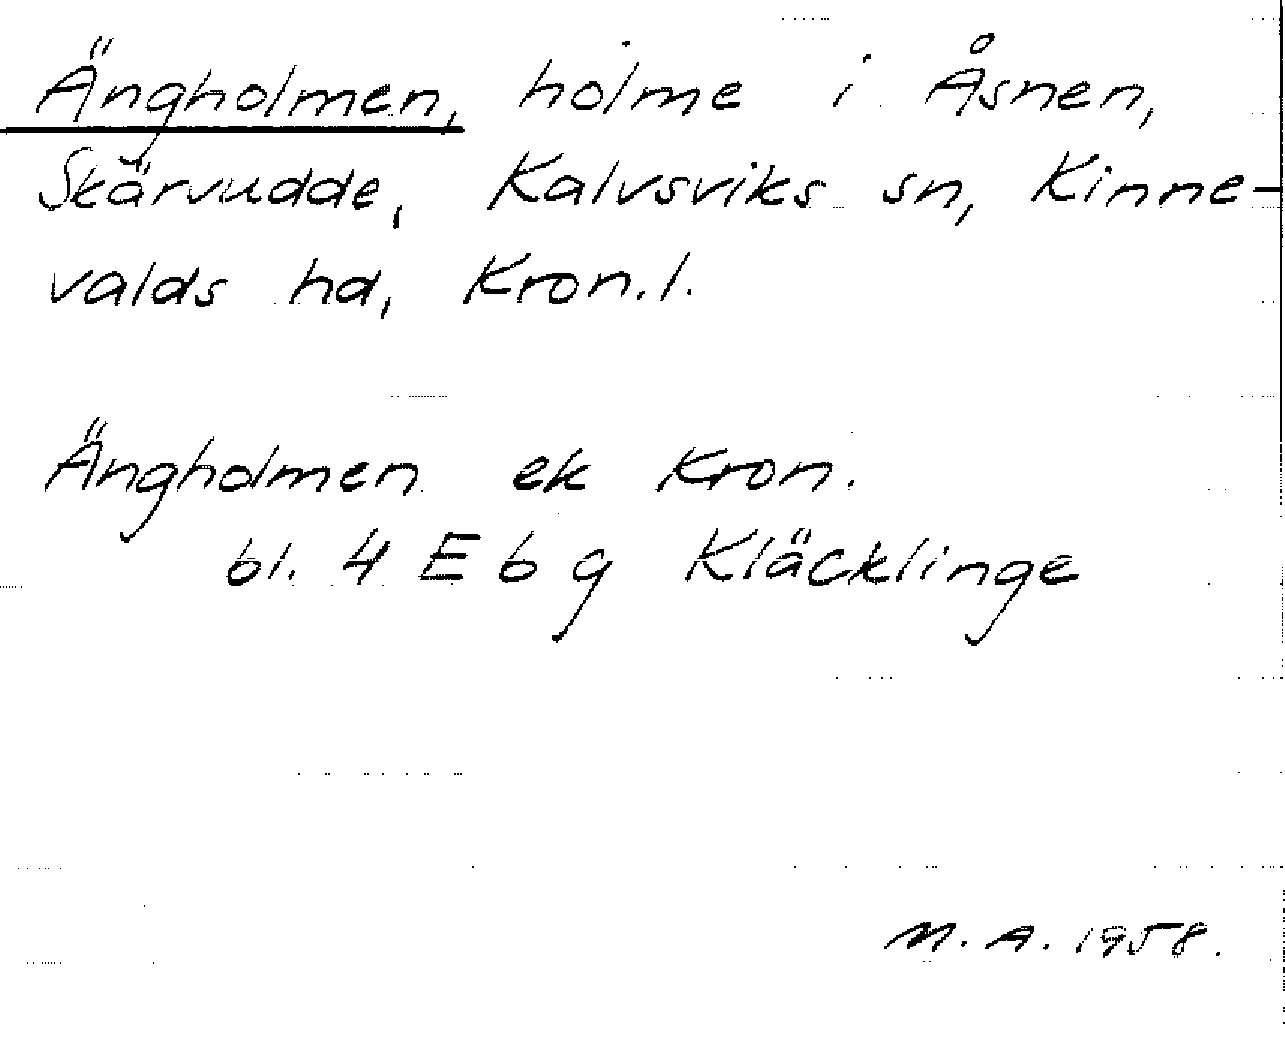 Ängholmen, holme i Åsnen,
Skärvudde, Kalvsviks sn, Kinne-
valds hd, Kron.l.
Ängholmen ek Kron.
bl. 4 E b g Kläcklinge
M. A. 1958.